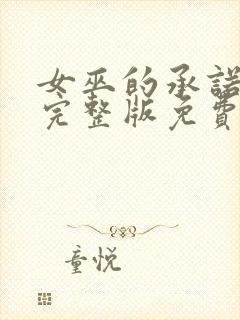 女巫的承諾
完整版免費
童悦